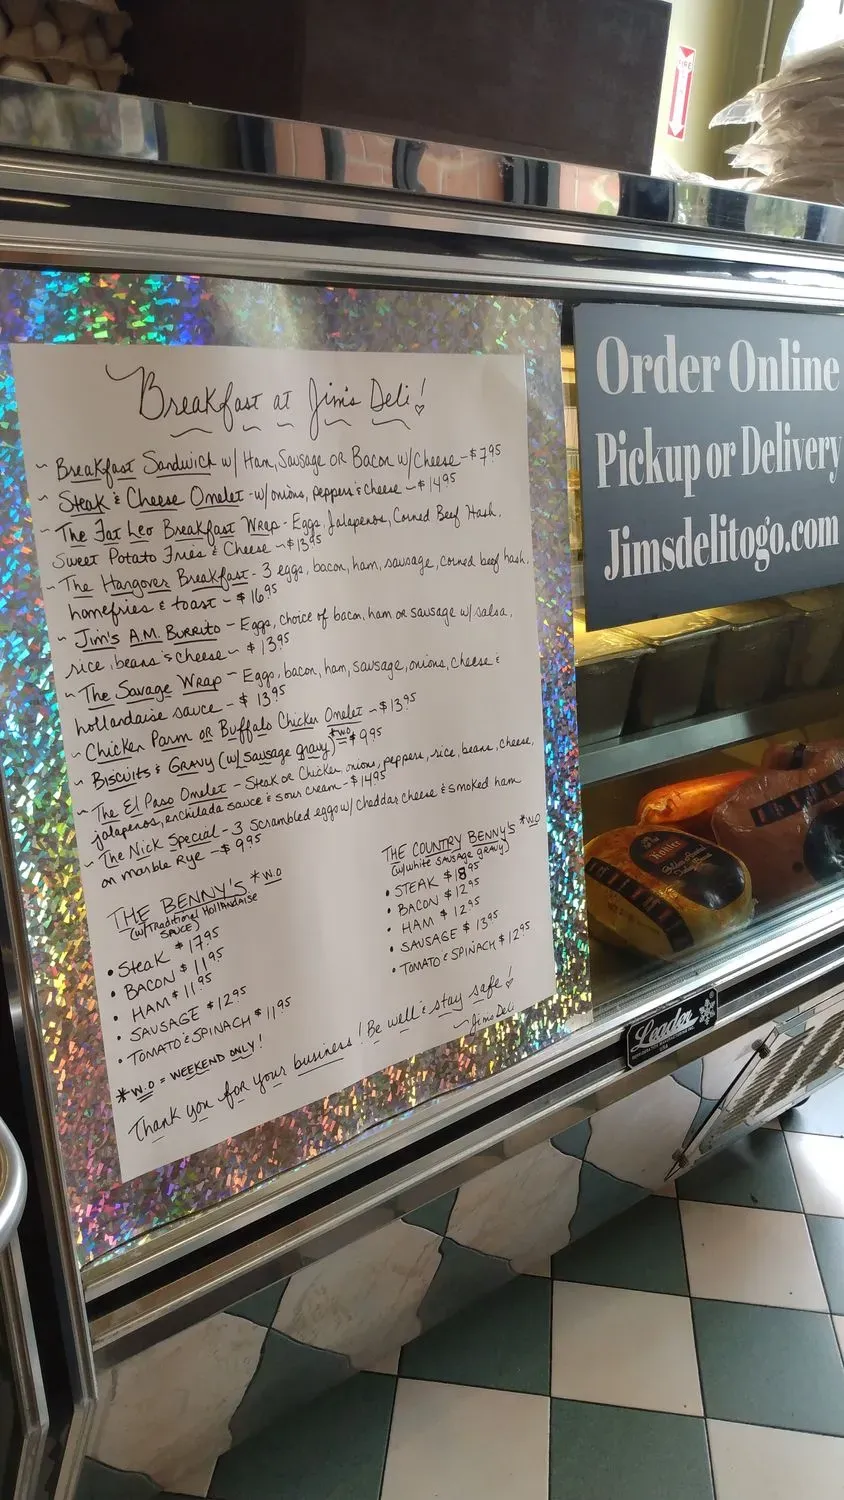 Breakfast at Jim's Deli!
~ Breakfast Sandwich w/ Ham, Sausage or Bacon w/ Cheese ~ $7.95
~ Steak & Cheese Omelet - w/ onions, peppers & cheese ~ $14.95
~ The Fat Leo Breakfast Wrap - Eggs, Jalapenos, Corned Beef Hash,
Sweet Potato Fries & Cheese ~ $13.95
~ The Hangover Breakfast - 3 eggs, bacon, ham, sausage, corned beef hash,
homefries & toast - $16.95
~ Jim's A.M. Burrito - Eggs, choice of bacon, ham or sausage w/ salsa,
rice, beans & cheese ~ $13.95
~ The Savage Wrap - Eggs, bacon, ham, sausage, onions, cheese &
hollandaise sauce - $13.95
~ Chicken Parm or Buffalo Chicken Omelet ~ $13.95
~ Biscuits & Gravy (w/ sausage gravy) *W.O $9.95
~ The El Paso Omelet - Steak or Chicken, onions, peppers, rice, beans, cheese,
jalapenos, enchilada sauce & sour cream - $14.95
~ The Nick Special - 3 Scrambled eggs w/ cheddar cheese & smoked ham
on marble Rye - $9.95
THE BENNY'S *W.O
(w/ Traditional Hollandaise
SAUCE)
• Steak $17.95
• BACON $11.95
• HAM $11.95
• SAUSAGE $12.95
• TOMATO & SPINACH $11.95
*W.O = WEEKEND ONLY!
THE COUNTRY BENNY'S *W.O
(w/ white SAUSAGE GRAVY)
• STEAK $18.95
• BACON $12.95
• HAM $12.95
• SAUSAGE $13.95
• TOMATO & SPINACH $12.95
Thank you for your business! Be well & stay safe!
~ Jim's Deli
Order Online
Pickup or Delivery
Jimsdelitogo.com
FIRE
Leader